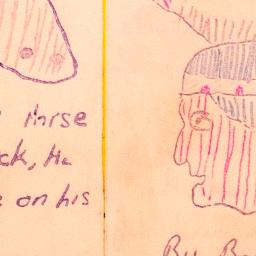 thrse
ck, He
e on his
By B